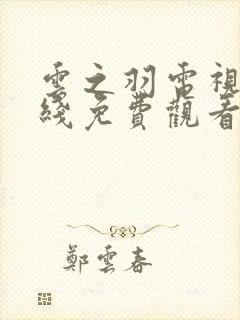 雲之羽電視
綫免費觀看
鄭雲春